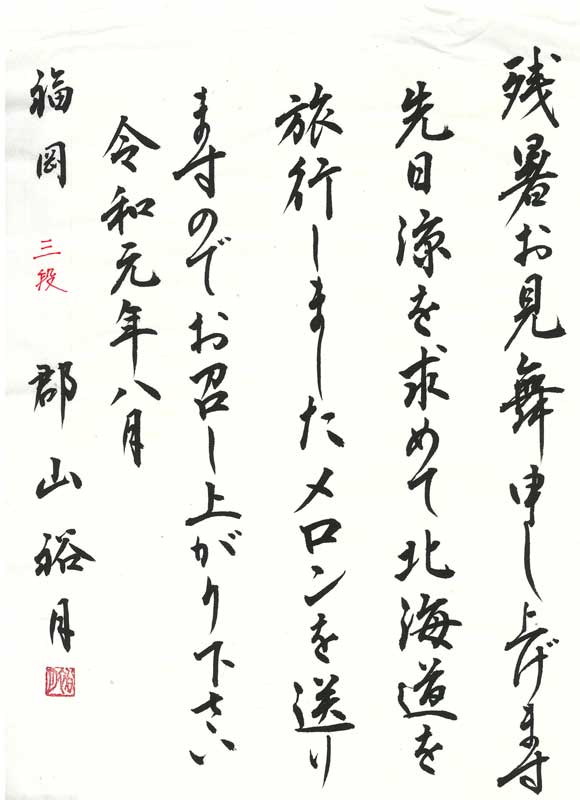 残暑お見舞申し上げます
先日涼を求めて北海道を
旅行しましたメロンを送り
ますのでお召し上がり下さい
令和元年八月
福岡 三段 郡山裕月